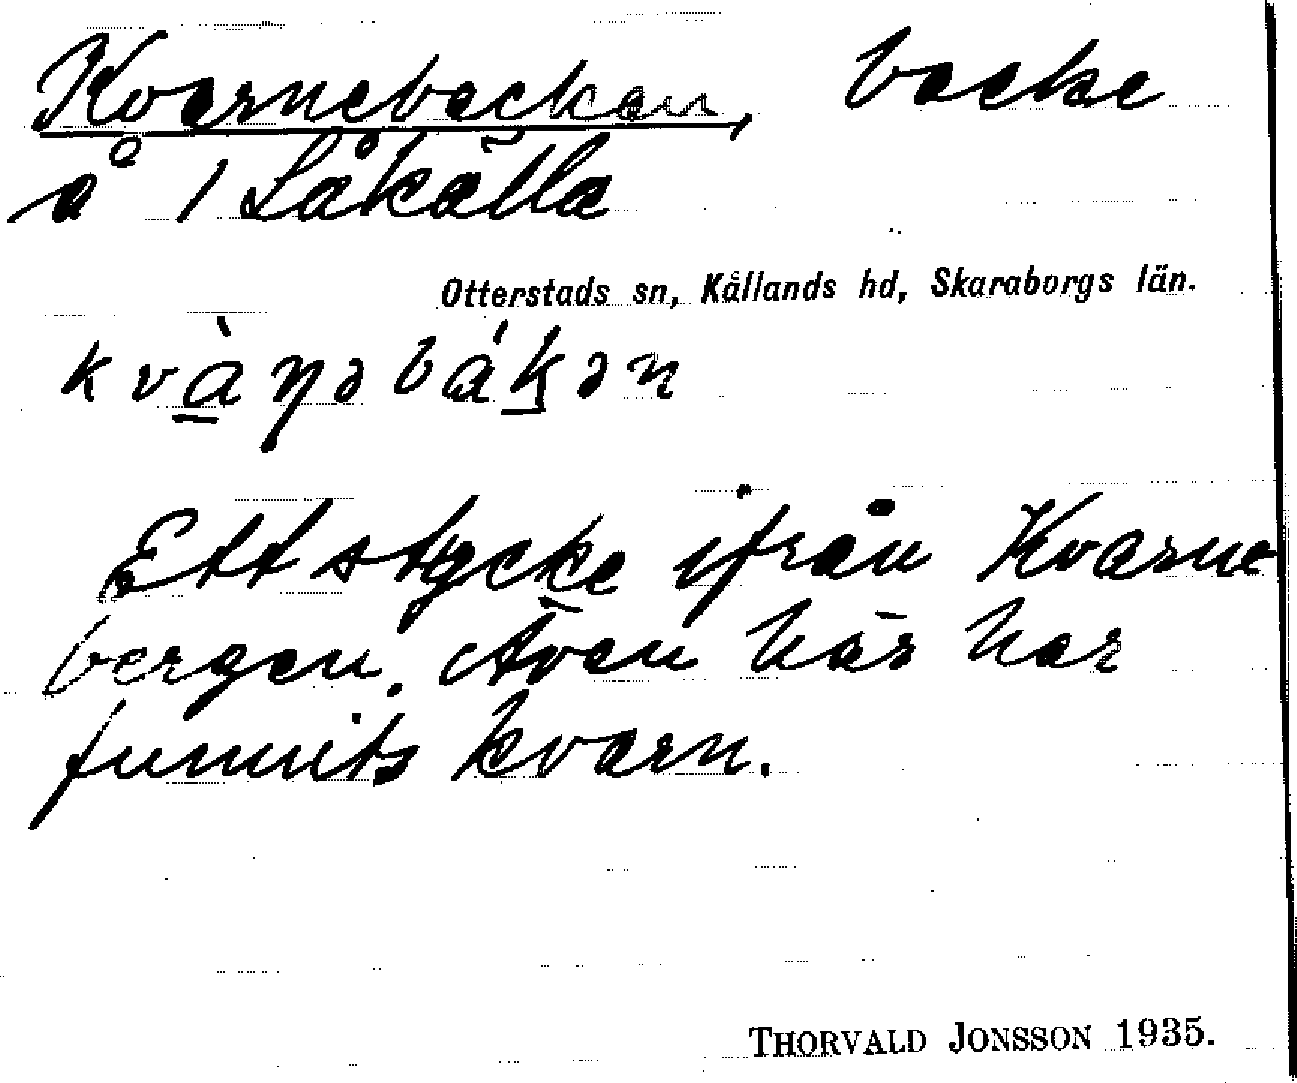 Kvarnebacken, backe
å 1 Låkälla
Otterstads sn, Kållands hd, Skaraborgs län.
kvàɳəbákən
Ett stycke ifrån Kvarne
bergen. Även här har
funnits kvarn.
THORVALD JONSSON 1935.